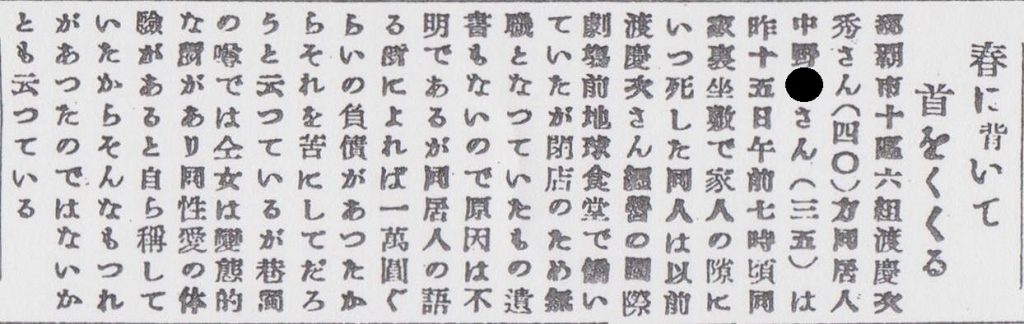 春に背いて
首をくくる
那覇市十區六組渡慶次
秀さん(四〇)方同居人
中野●さん(三五)は
昨十五日午前七時頃同
家裏坐敷で家人の隙に
いつ死した同人は以前
渡慶次さん經營の國際
劇場前地球食堂で働い
ていたが閉店のため無
職となつていたもの遺
書もないので原因は不
明であるが同居人の語
る所によれば一萬圓ぐ
らいの負債があつたか
らそれを苦にしてだろ
うと云つているが巷間
の噂では仝女は變態的
な所があり同性愛の体
驗があると自ら稱して
いたからそんなもつれ
があつたのではないか
とも云つている